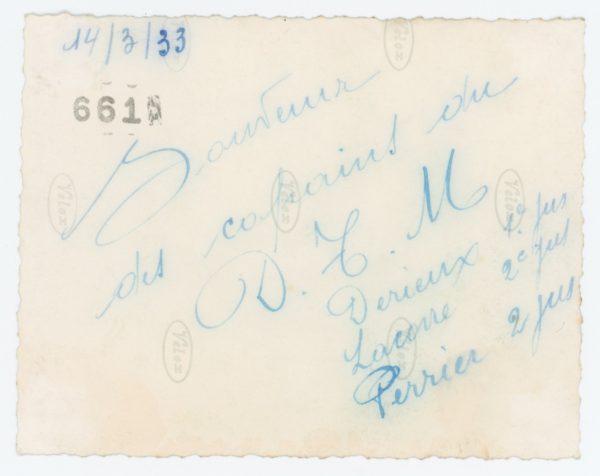 14/3/33
6611
Souvenir
des copains du
D. C. M
Derieux 1e jus
Lacorre 2e jus
Perrier 2 jus
Velox
Velox
Velox
Velox
Velox
Velox